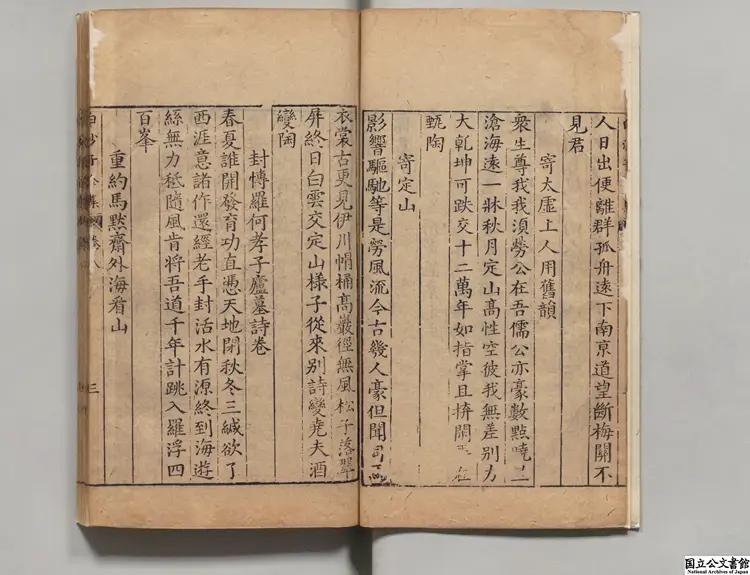 人日出便離群孤舟遠下南京道望斷梅關不
見君
寄太虛上人用舊韻
衆生尊我我須勞公在吾儒公亦豪數點曉山
滄海遠一牀秋月定山高性空彼我無差別力
大乾坤可跌交十二萬年如指掌且拚閑
甄陶
寄定山
影響驅馳等是勞風流今古幾人豪但聞司
衣裳古更見伊川帽桶高巖徑無風松子落翠
屏終日白雲交定山樣子從來別詩變堯夫酒
變陶
封博羅何孝子廬墓詩卷
春夏誰開發育功直憑天地閉秋冬三緘欲了
西涯意諸作還經老手封活水有源終到海遊
絲無力秪隨風肯將吾道千年計跳入羅浮四
百峯
重約馬默齋外海看山
白沙子全集
三
国立公文書館
National Archives of Japan